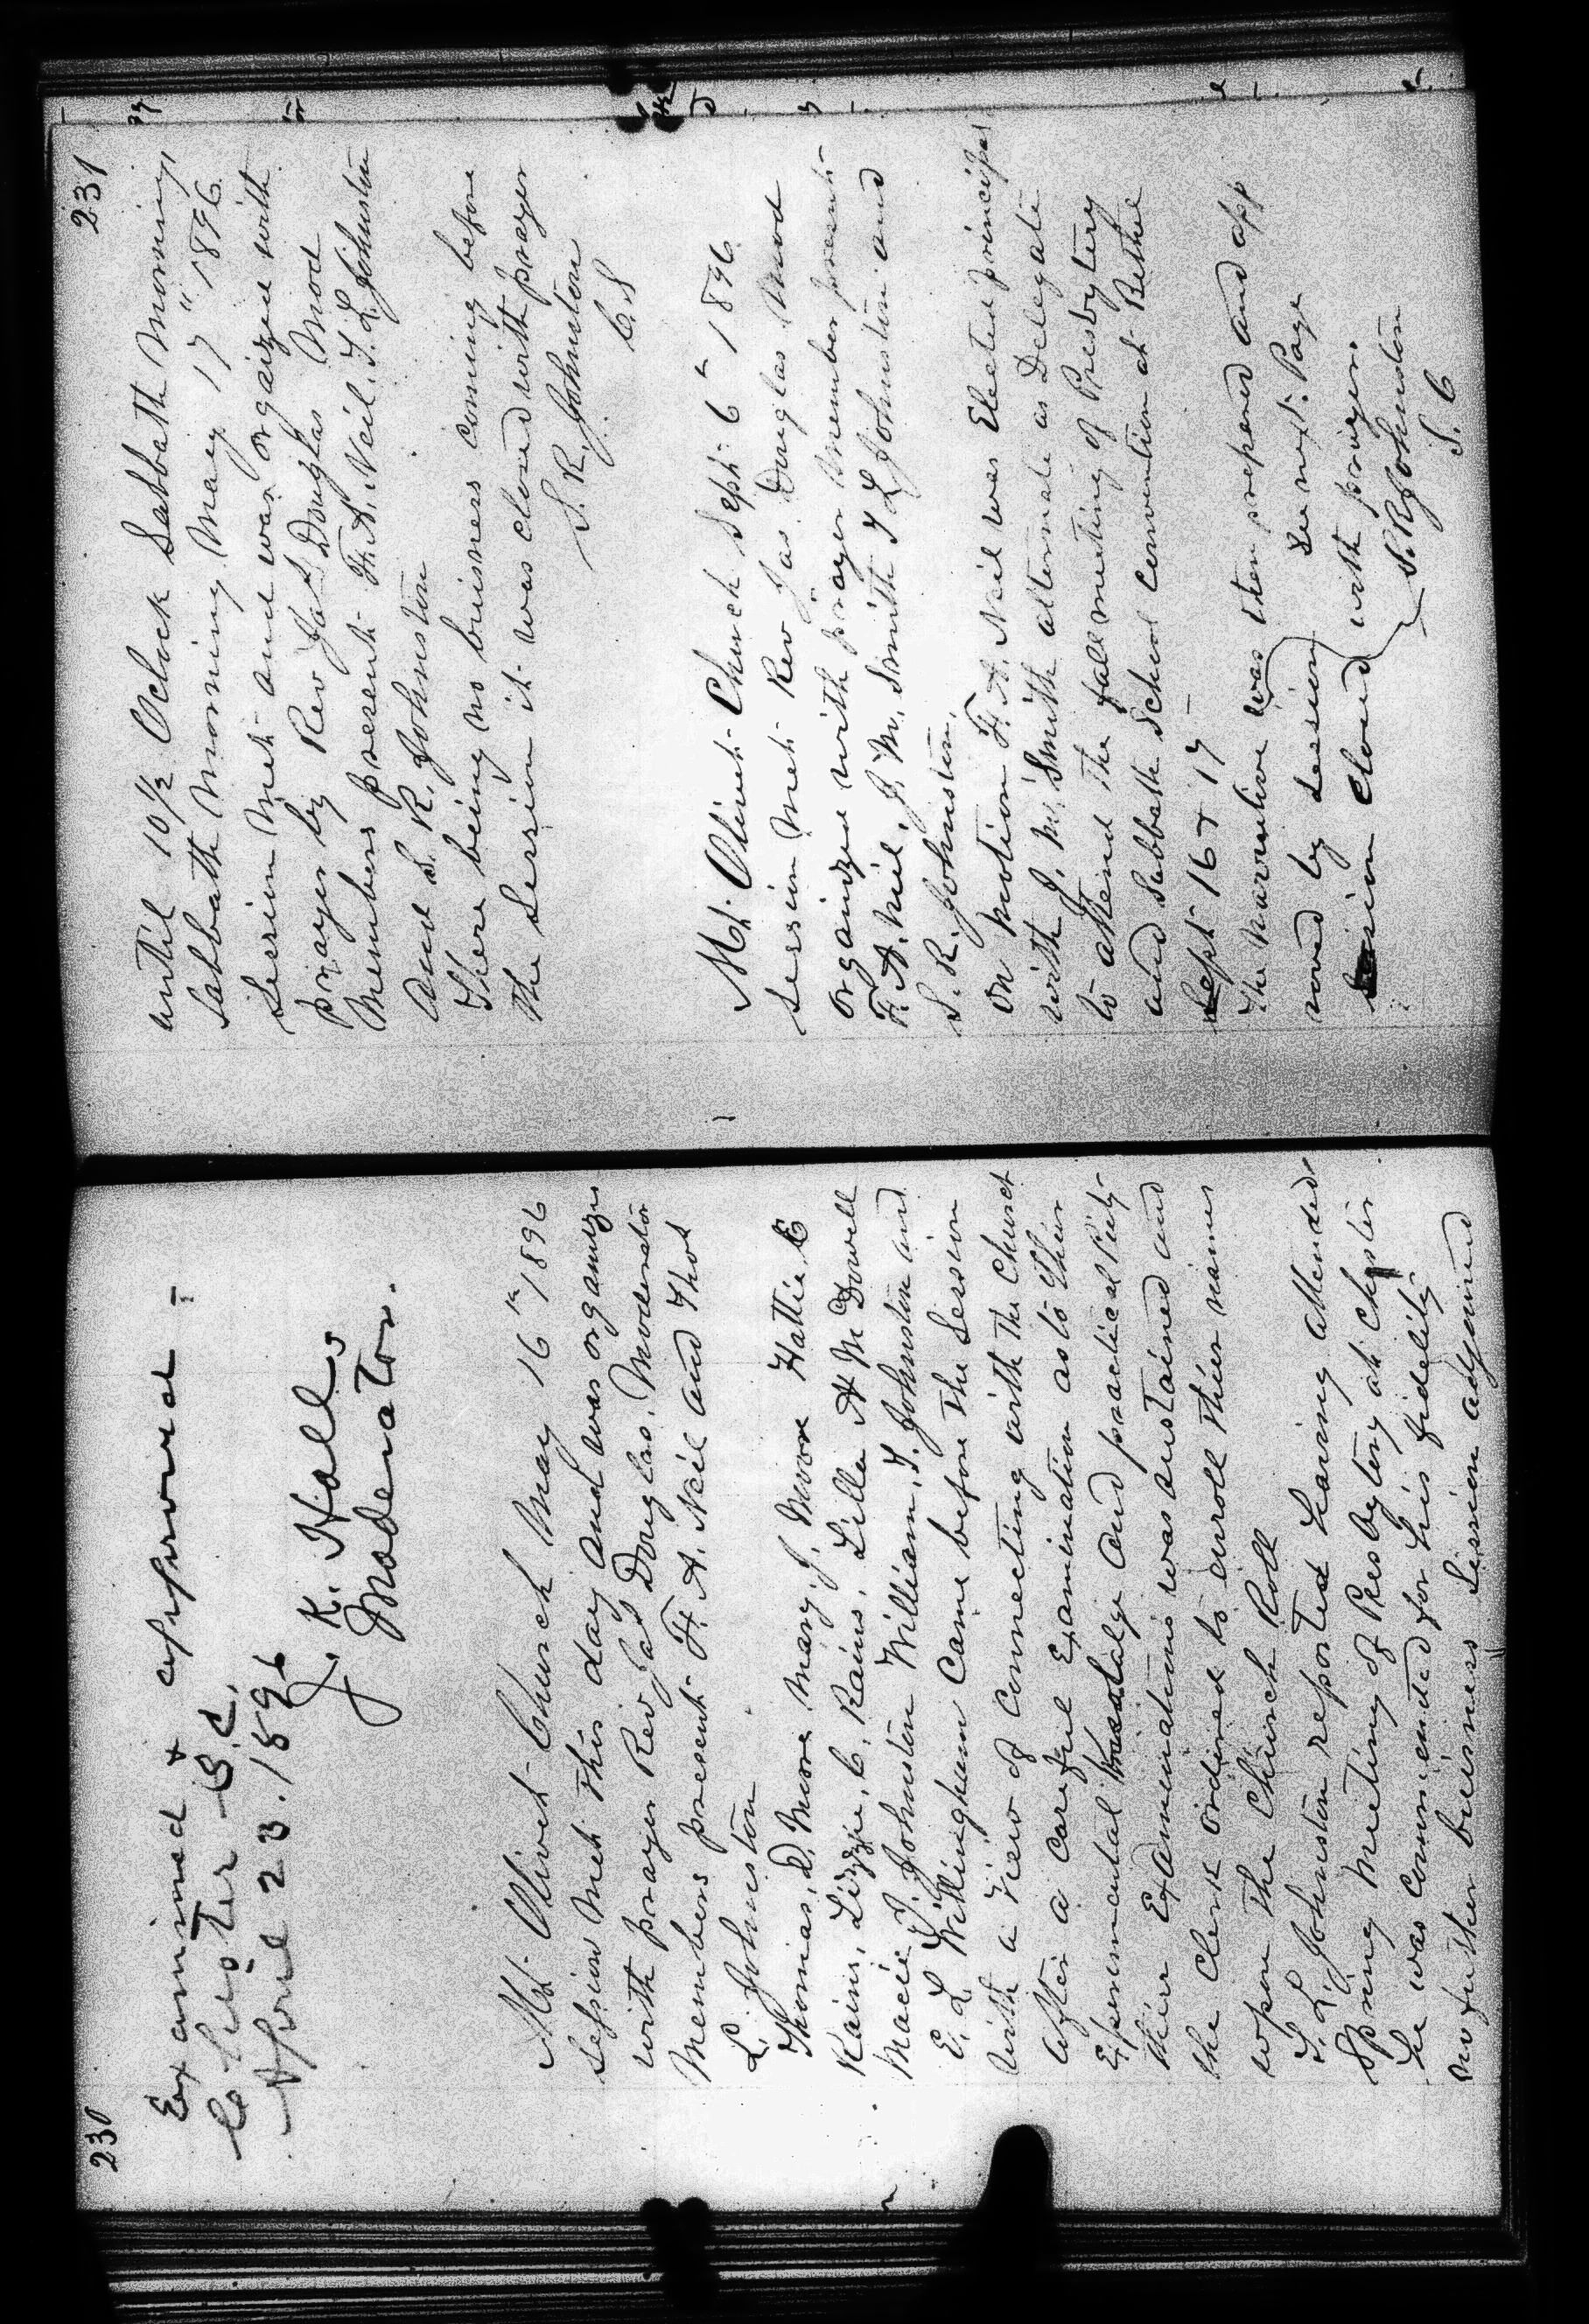 230
Examined & approved -
Chester S.C.
April 23. 1896
J. K. Hall,
Moderator.
Mt. Olivet Church May 16th 1896
Session Met this day and was organized
with prayer Rev Jas Douglas. Moderator
Members present F. A. Neil and Thos
L. Johnston.
Thomas. D. Moore Mary. J. Moore Hattie. E
Rains, Lizzie, C. Rains. Lilla A McDowell
Macie J. Johnston William. T. Johnston and
E. L Willingham Came before the Session
with a View of Connecting with the Church
After a Careful Examination as to their
Experimental and practical Piety
their Examinations was sustained and
the Clerk ordired to enroll their names
upon the Church Roll
T. L. Johnston reported having attended
Spring Meeting of Presbytery at Chester
he was Commended for his fidelity
no further business Session adjourned
231
until 10 1/2 Oclock Sabbath Morning
Sabbath Morning May. 17 " 1896.
Session Met and was orgaized with
prayer by Rev Jas Douglas Mod
Members present F. A. Neil. T. L. Johnston
And S. R. Johnston
There being no business coming before
the Session it was closed with prayer
S. R. Johnston
C. S
Mt. Olivet Church Sept 6th 1896.
Session Met Rev Jas. Douglas Mod
organized with prayer Member present
F. A. Neil, J. M. Smith T L Johnston and
S. R. Johnston.
On Motion F. A. Neil was Elected principal
with J. M. Smith alternate as Delegate
to attend the fall meeting of Presbytery
and Sabbath School Convention at Bethel
Sept 16 & 17 -
The Narrative was then prepared and app
roved by Session) See next Page
Session Closed with prayer.
S. R Johnston
S. C